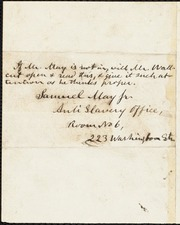 If Mr. May is not in, will Mr. Wall-
cut open & read this, & give it such at-
tention as he thinks proper.
Samuel May Jr.
Anti Slavery Office,
Room No 6,
223 Washington St.